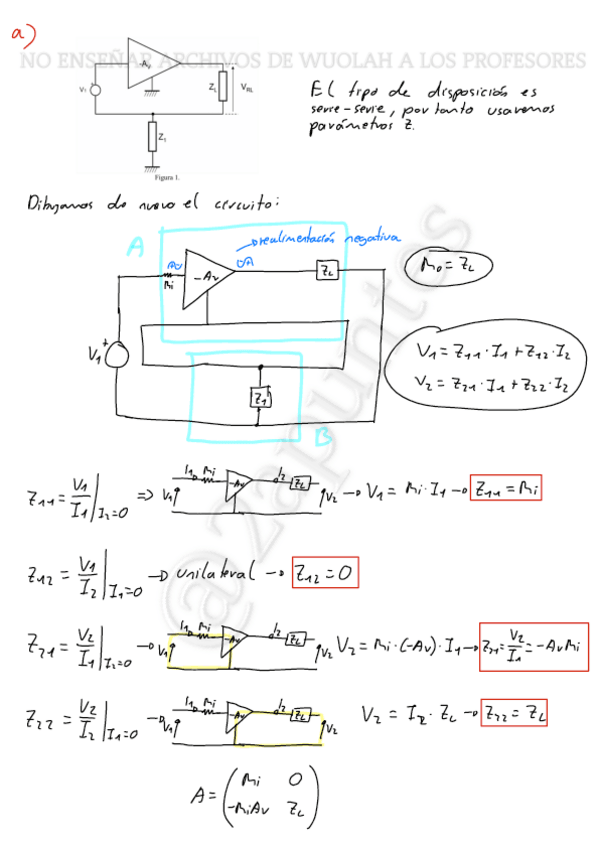 a)
NO ENSEÑAR ARCHIVOS DE WUOLAH A LOS PROFESORES
-Av
V1
ZL
VRL
Z1
Figura 1.
El tipo de disposición es
serie-serie, por tanto usaremos
parámetros Z.
Dibujamos de nuevo el circuito:
A
realimentación negativa
Ri
-Av
ZL
Ro = ZL
V1
+
Z1
B
V1 = Z11 · I1 + Z12 · I2
V2 = Z21 · I1 + Z22 · I2
Z11 = V1/I1 | I2=0 => V1 I1 Ri -Av I2 ZL V2 → V1 = Ri · I1 → Z11 = Ri
Z12 = V1/I2 | I1=0 → unilateral → Z12 = 0
Z21 = V2/I1 | I2=0 → V1 I1 Ri -Av I2 ZL V2 V2 = Ri · (-Av) · I1 → Z21 = V2/I1 = -AvRi
Z22 = V2/I2 | I1=0 → V1 I1 Ri -Av I2 ZL V2 V2 = I2 · ZL → Z22 = ZL
A = ( Ri 0
-RiAv ZL )
@2apuntes